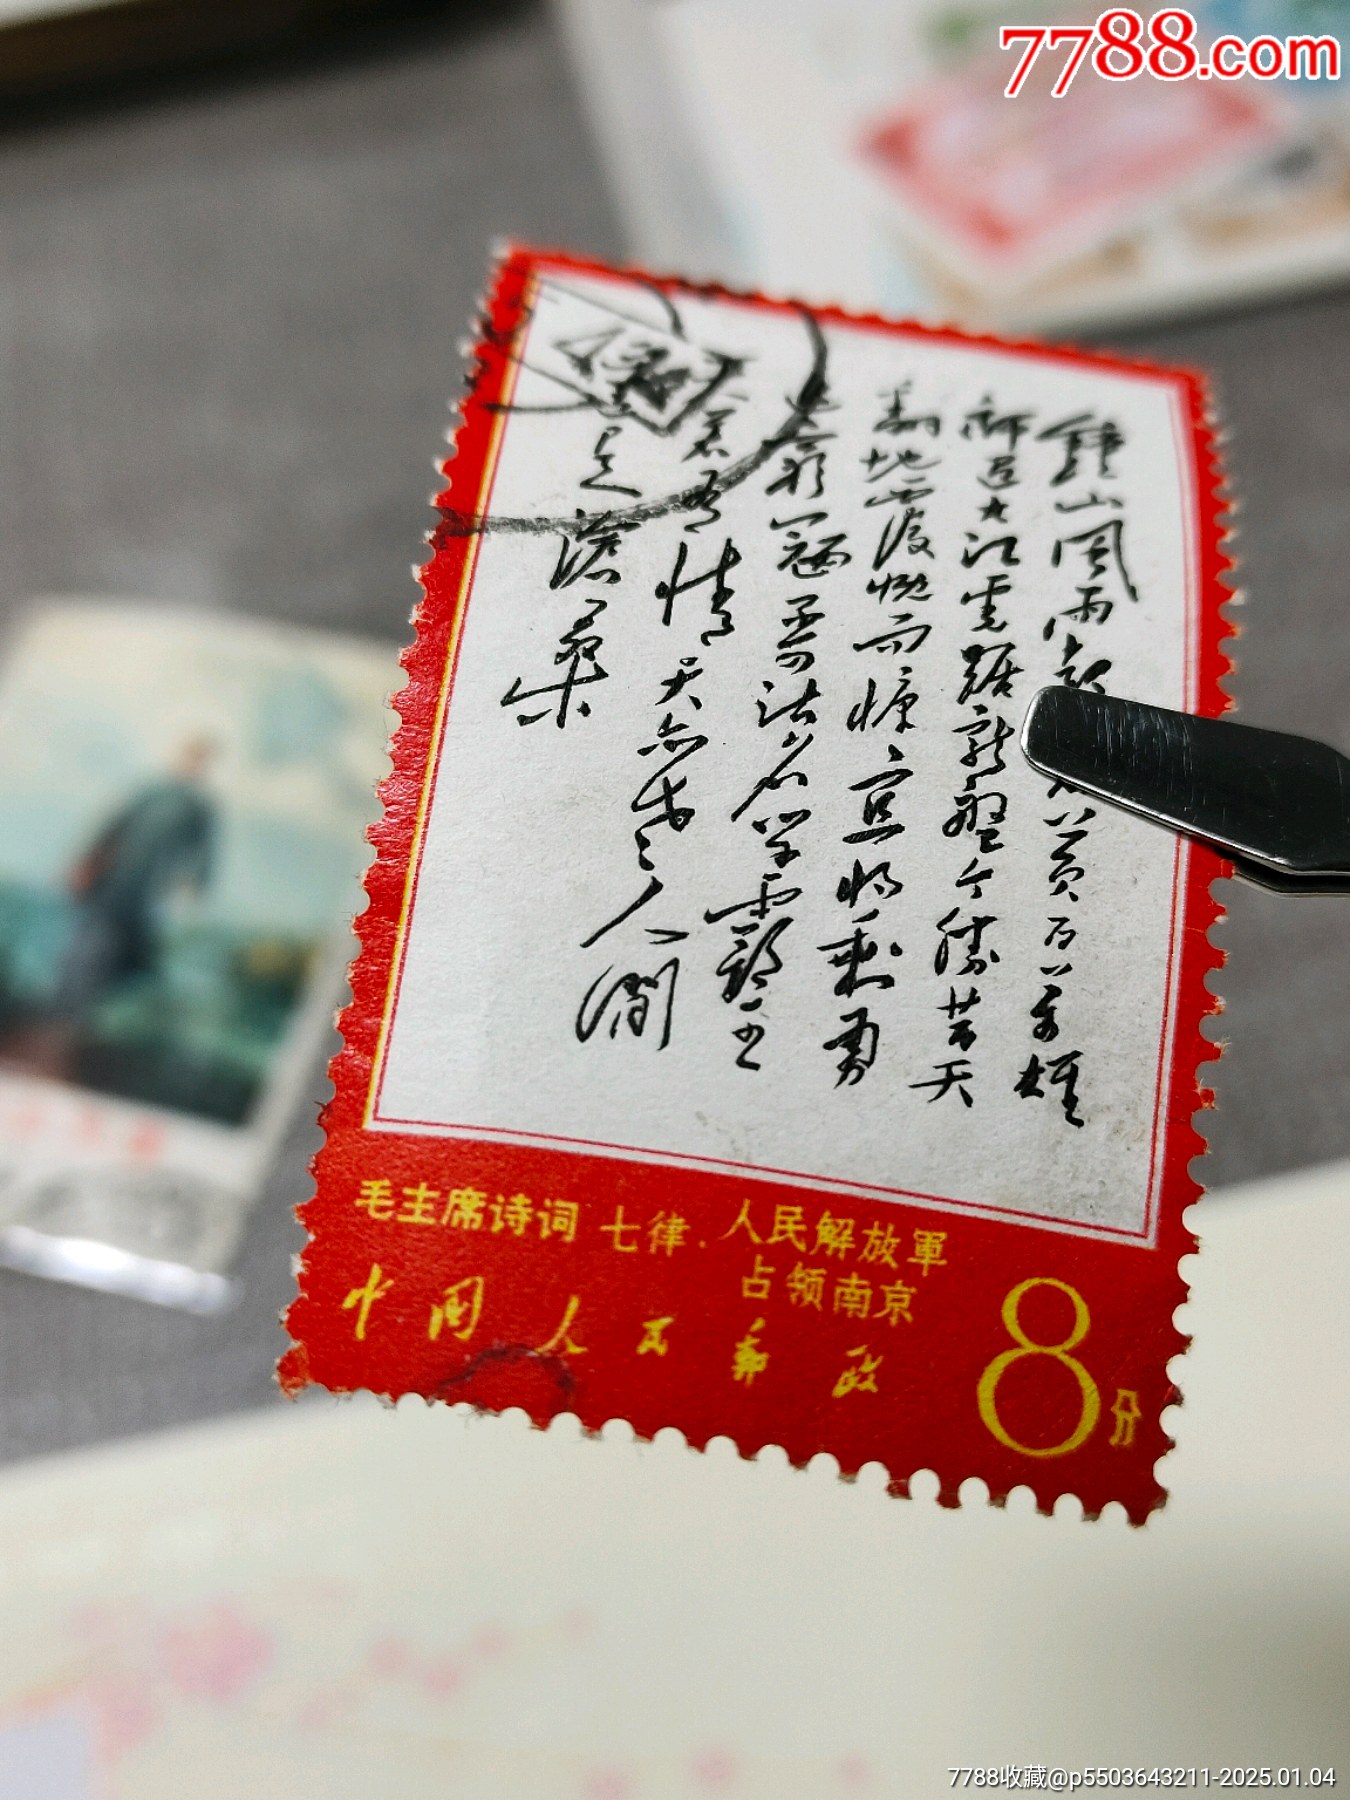 7788.com
鐘山風雨起黃百万雄
師過大江虎踞龍盤今勝昔天
翻地覆慨而慷宜將剩勇
追窮寇不可沽名學霸王
若有情天亦老人間
是滄桑
毛主席诗词 七律·人民解放軍
占领南京
中国人民邮政
8分
7788收藏@p5503643211-2025.01.04